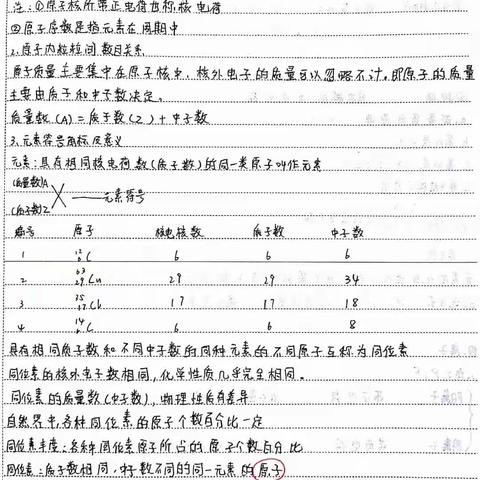 注:①原子核所带正电荷也称核电荷
②原子序数是指元素在周期中
2.原子内粒子间数目关系
原子质量主要集中在原子核中,核外电子的质量可以忽略不计。即原子的质量
主要由质子和中子数决定。
质量数(A)=质子数(Z)+中子数
3.元素符号角标及意义
元素:具有相同核电荷数(质子数)的同一类原子叫作元素
(质量数)A
X——元素符号
(质子数)Z
编号 原子 核电核数 质子数 中子数
1 ¹²₆C 6 6 6
2 ⁶³₂₉Cu 29 29 34
3 ³⁵₁₇Cl 17 17 18
4 ¹⁴₆C 6 6 8
具有相同质子数和不同中子数的同种元素的不同原子互称为同位素
同位素的核外电子数相同,化学性质几乎完全相同。
同位素的质量数(中子数),物理性质有差异
自然界中,各种同位素的原子个数百分比一定
同位素丰度:各种同位素原子所占的原子个数百分比
同位素:质子数相同,中子数不同的同一元素的原子